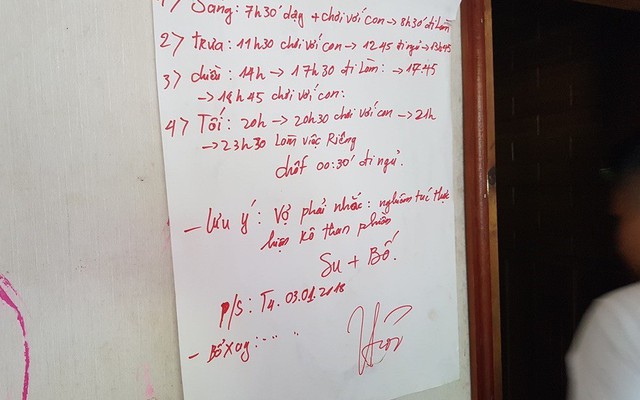 1) Sáng: 7h30' dậy + chơi với con → 8h30' đi làm
2) Trưa: 11h30 chơi với con → 12 45 đi ngủ → 13h45
3) chiều: 14h → 17h30 đi làm: → 17.45
→ 18h45 chơi với con:
4) Tối: 20h → 20h30 chơi với con → 21h
→ 23h30 Làm việc Riêng
chốt 00:30' đi ngủ.
- Lưu ý: Vợ phải nhắc: nghiêm túc thực
hiện kô than phiền
Su + Bố.
P/S: T4. 03.01.2018
- Bổ xug: